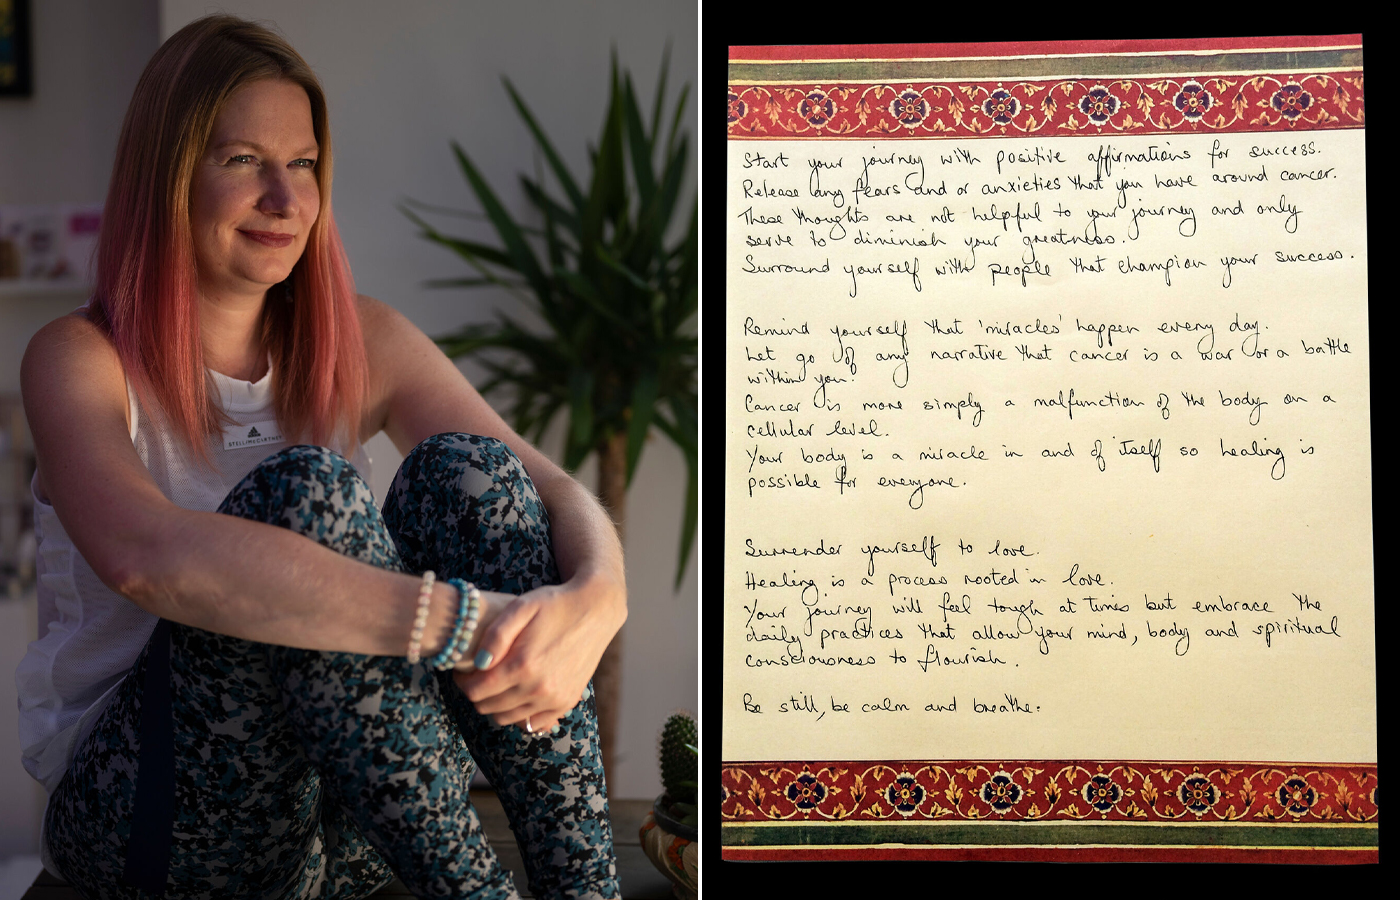 STELLAMcCARTNEY
Start your journey with positive affirmations for success.
Release any fears and or anxieties that you have around cancer.
These thoughts are not helpful to your journey and only
serve to diminish your greatness.
Surround yourself with people that champion your success.
Remind yourself that 'miracles' happen every day.
Let go of any narrative that cancer is a war or a battle
within you.
Cancer is more simply a malfunction of the body on a
cellular level.
Your body is a miracle in and of itself so healing is
possible for everyone.
Surrender yourself to love.
Healing is a process rooted in love.
Your journey will feel tough at times but embrace the
daily practices that allow your mind, body and spiritual
consciousness to flourish.
Be still, be calm and breathe.